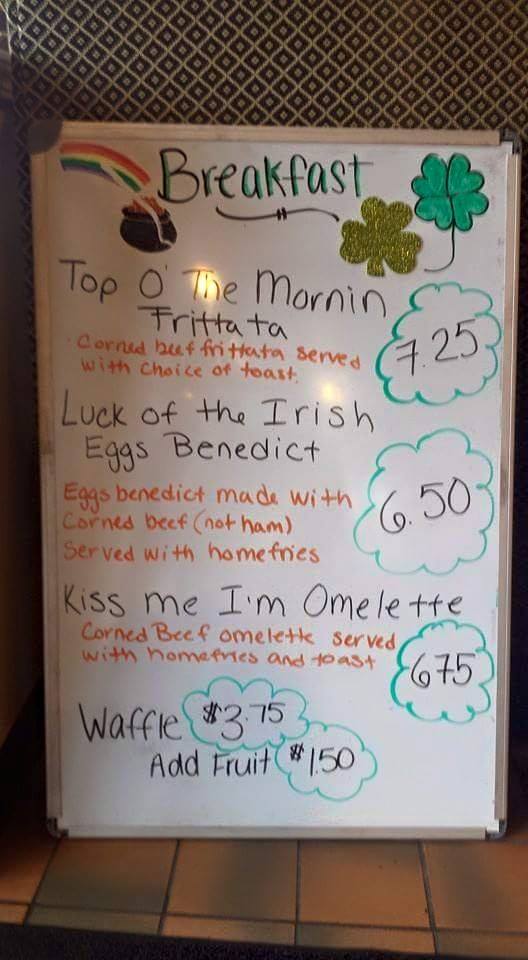 Breakfast
Top O' The Mornin
Frittata
Corned beef frittata served
with choice of toast.
7.25
Luck of the Irish
Eggs Benedict
Eggs benedict made with
Corned beef (not ham)
Served with homefries
6.50
Kiss me I'm Omelette
Corned Beef omelette served
with homefries and toast
675
Waffle $3.75
Add Fruit $1.50